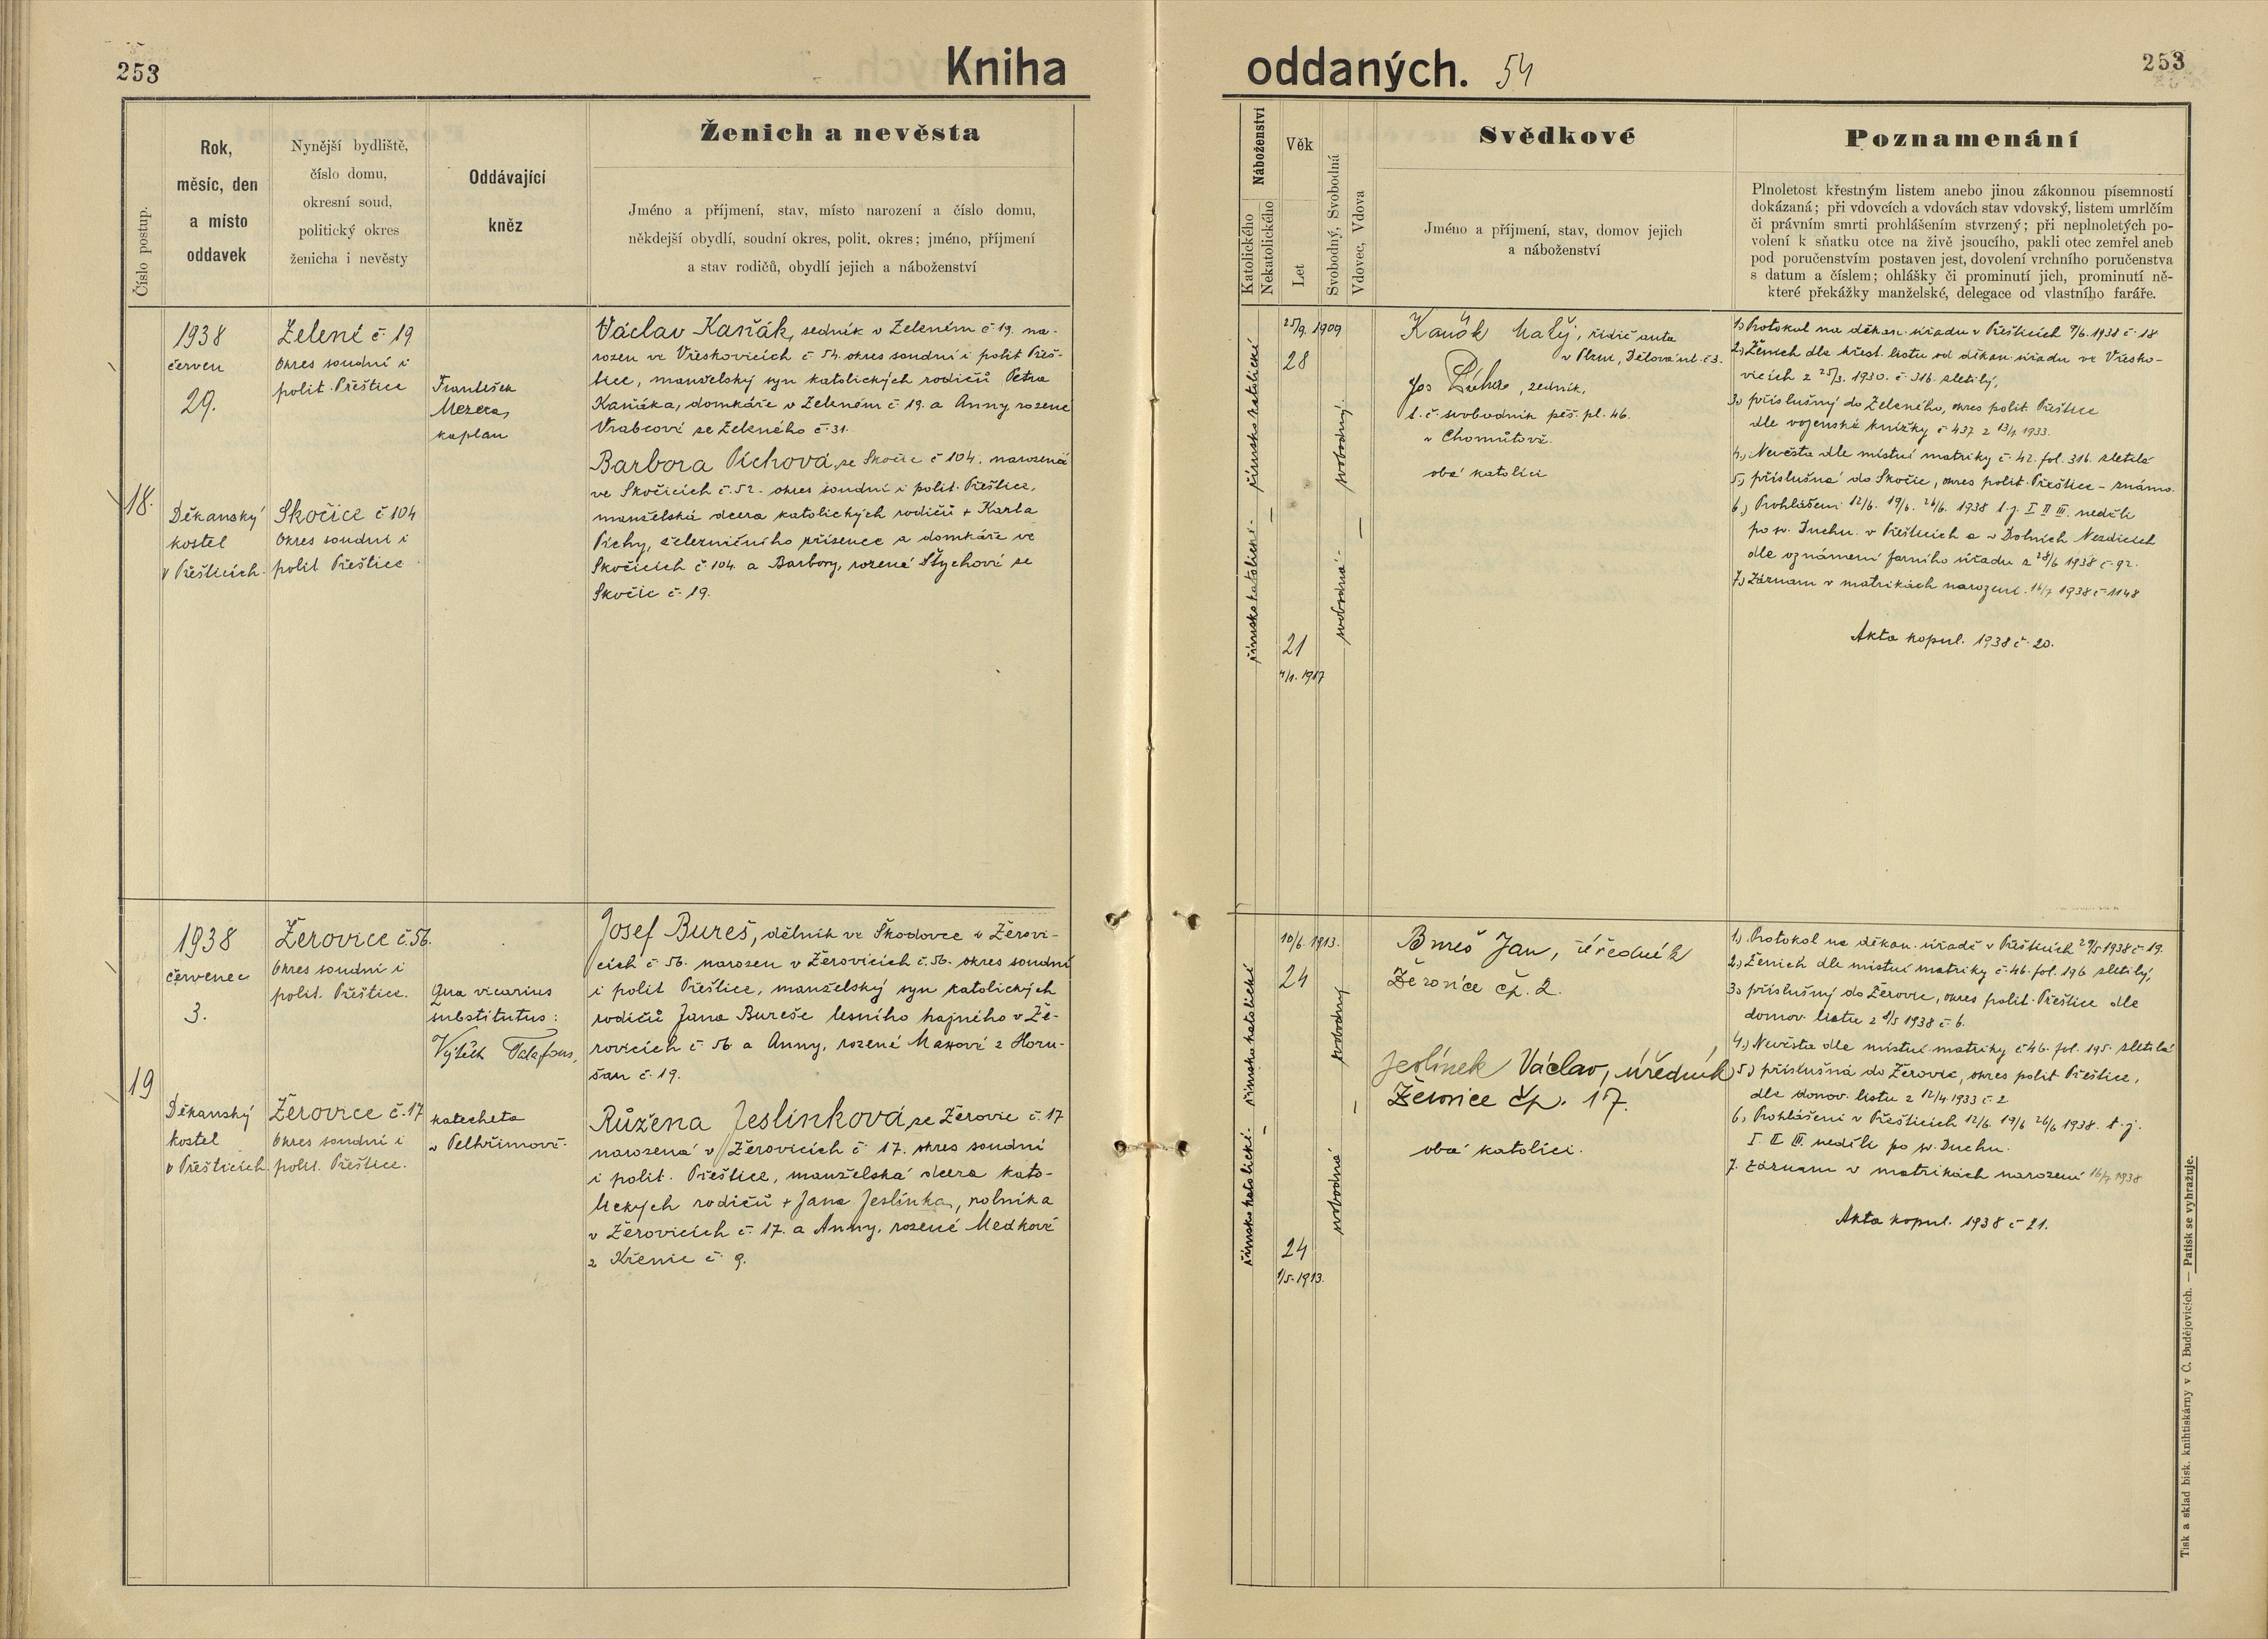 253
Kniha
Číslo postup.
Rok,
měsíc, den
a místo
oddavek
Nynější bydliště,
číslo domu,
okresní soud,
politický okres
ženicha i nevěsty
Oddávající
kněz
Ženich a nevěsta
Jméno a příjmení, stav, místo narození a číslo domu,
někdejší obydlí, soudní okres, polit. okres; jméno, příjmení
a stav rodičů, obydlí jejich a náboženství
18.
1938
červen
29.
Děkanský
kostel
v Přešticích.
Zelené č. 19
Okres soudní i
polit. Přeštice
Skočice č 104
Okres soudní i
polit Přeštice
František
Mezera,
kaplan
Václav Kaňák, zedník v Zeleném č 19. na-
rozen ve Vřeskovicích č 54. okres soudní i polit Přeš-
tice, manželský syn katolických rodičů Petra
Kaňáka, domkáře v Zeleném č 19. a Anny rozené
Vrabcové ze Zeleného č. 31.
Barbora Píchová, ze Skočic č 104. narozená
ve Skočicích č. 52. okres soudní i polit. Přeštice,
manželská dcera katolických rodičů + Karla
Píchy, železničního zřízence a domkáře ve
Skočicích č 104. a Barbory, rozené Štychové ze
Skočic č. 19.
19
1938
červenec
3.
Děkanský
kostel
v Přešticích.
Žerovice č. 56.
Okres soudní i
polit. Přeštice.
Žerovice č. 17
Okres soudní i
polit. Přeštice.
Qua vicarius
substitutus:
Vojtěch Talafous,
katecheta
v Pelhřimově.
Josef Bureš, dělník ve Škodovce v Žerovi-
cích č 56. narozen v Žerovicích č. 56. okres soudní
i polit Přeštice, manželský syn katolických
rodičů Jana Bureše lesního hajného v Že-
rovicích č 56 a Anny, rozené Maxové z Horu-
šan č. 19.
Růžena Jeslínková, ze Žerovic č. 17
narozená v Žerovicích č 17. okres soudní
i polit. Přeštice, manželská dcera kato-
lických rodičů + Jana Jeslínka, rolníka
v Žerovicích č. 17. a Anny, rozené Medkové
z Křenic č. 9.
oddaných. 54
253
Náboženství
Katolického
Nekatolického
Věk
Let
Svobodný, Svobodná
Vdovec, Vdova
Svědkové
Jméno a příjmení, stav, domov jejich
a náboženství
Poznamenání
Plnoletost křestným listem anebo jinou zákonnou písemností
dokázaná; při vdovcích a vdovách stav vdovský, listem umrlčím
či právním smrti prohlášením stvrzený; při neplnoletých po-
volení k sňatku otce na živě jsoucího, pakli otec zemřel aneb
pod poručenstvím postaven jest, dovolení vrchního poručenstva
s datum a číslem; ohlášky či prominutí jich, prominutí ně-
které překážky manželské, delegace od vlastního faráře.
římsko katolické
římsko katolické.
25/9. 1909
28
21
4/1. 1917
svobodný.
svobodná.
Kaňák Matěj, řidič auta
v Plzni, Dělová ul. č 3.
Jos Pícha, zedník,
t. č. svobodník pěš. pl. 46.
v Chomůtově.
oba katolíci
1.) Protokol na děkan. úřadu v Přešticích 9/6. 1938 č. 18
2.) Ženich dle křest. listu od děkan. úřadu ve Vřesko-
vicích z 25/3. 1930. č. 316. zletilý,
3.) příslušný do Zeleného, okres polit. Přeštice
dle vojenské knížky č 437 z 13/4 1933.
4.) Nevěsta dle místní matriky č. 42. fol. 316. zletilá
5.) příslušná do Skočic, okres polit. Přeštice – známo.
6.) Prohlášeni 12/6. 19/6. 26/6. 1938 t. j. I II III. neděli
po sv. Duchu. v Přešticích a v Dolních Nezdicích
dle oznámení farního úřadu z 28/6 1938 č. 92.
7.) Záznam v matrikách narození. 16/7 1938 č 1148
Akta kopul. 1938 č. 20.
římsko katolické
římsko katolické.
10/6. 1913.
24
24
1/5. 1913.
svobodný
svobodná
Bureš Jan, úředník
Žerovice čp. 2.
Jeslínek Václav, úředník
Žerovice čp. 17.
oba katolíci.
1.) Protokol na děkan. úřadě v Přešticích 29/5 1938 č. 19.
2.) Ženich dle místní matriky č 46. fol. 196 zletilý,
3.) příslušný do Žerovic, okres polit. Přeštice dle
domov. listu z 8/5 1938 č 6.
4.) Nevěsta dle místní matriky č 46. fol. 195. zletilá
5.) příslušná do Žerovic, okres polit Přeštice,
dle domov. listu z 12/4 1933 č. 2
6.) Prohlášeni v Přešticích 12/6. 19/6 26/6 1938. t. j.
I. II III. neděli po sv. Duchu.
7. Záznam v matrikách narození 16/7 1938
Akta kopul. 1938 č 21.
Tisk a sklad bisk. knihtiskárny v Č. Budějovicích. — Patisk se vyhražuje.